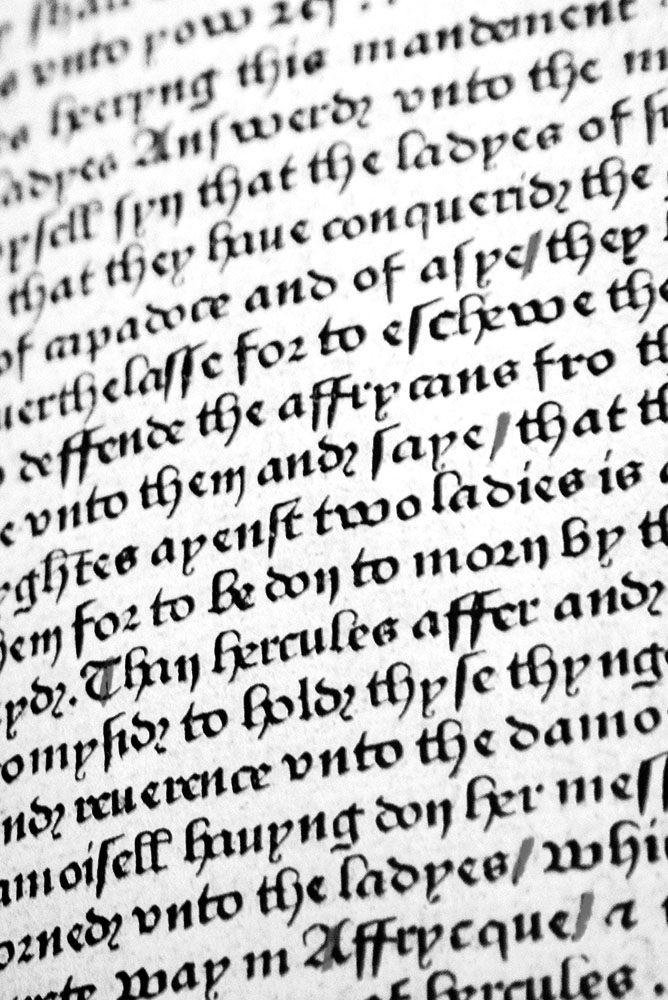 vnto yow
heeryng this mandement
Answerd vnto the
syn that the ladyes of
that they haue conquerid the
of capadoce and of asye/they
uerthelasse for to eschewe the
deffende the affrycans fro
vnto them and saye/that
yghtes ayenst two ladies is
hem for to be don to morn by
Than hercules affer and
ompysid to hold thyse thyng
nd reuerence vnto the damo
amoisell hauyng don her mess
orned vnto the ladyes/whi
way in Affrycque/ &
of hercules.